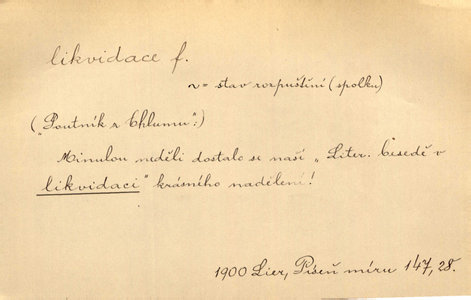 likvidace f.
~ = stav rozpuštění (spolku)
(„Poutník z Chlumu":)
Minulou neděli dostalo se naší „Liter. besedě v
likvidaci" krásného nadělení!
1900 Lier, Píseň míru 147, 28.